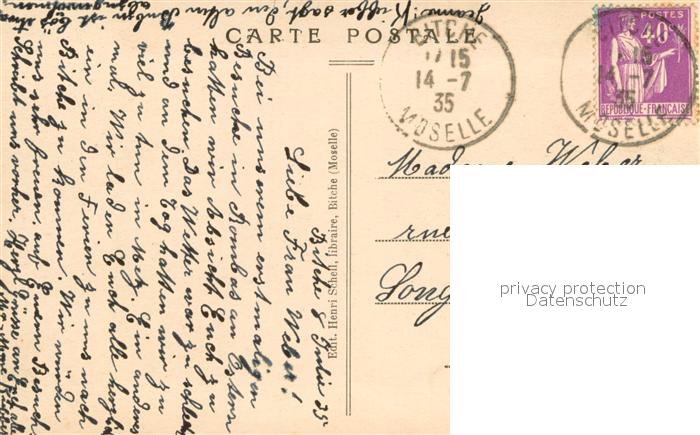 CARTE POSTALE
BITCHE
15
14-7
35
MOSELLE
BITCHE
15
14-7
35
MOSELLE
POSTES
40c
REPUBLIQUE-FRANÇAISE
Madame Weber
rue
Long
privacy protection
Datenschutz
Edit. Henri Schell, libraire, Bitche (Moselle)
Bitche 8 Juli 35
Liebe Frau Weber!
Bei unserem erstmaligen
Besuche in Rombas an Ostern
hatten wir Absicht Euch zu
besuchen. Das Wetter war zu schlecht
und an dem Tog hatten wir zu
viel zu tun in Metz. Ein anderes
mal. Wir laden Euch alle
ein in den Ferien zu uns nach
Bitche zu kommen. Wir würden
uns sehr freuen, auf Euren Besuch
Schreibt uns vorher,
sagt, den alten